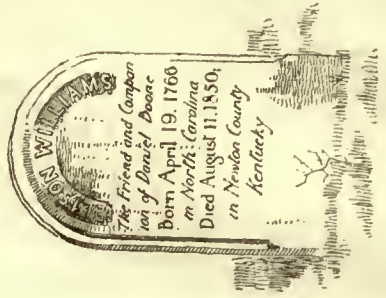 WILLIAMS
The Friend and Compan
ion of Daniel Boone
Born April 19. 1766
in North Carolina
Died August 11. 1850,
in Newton County
Kentucky